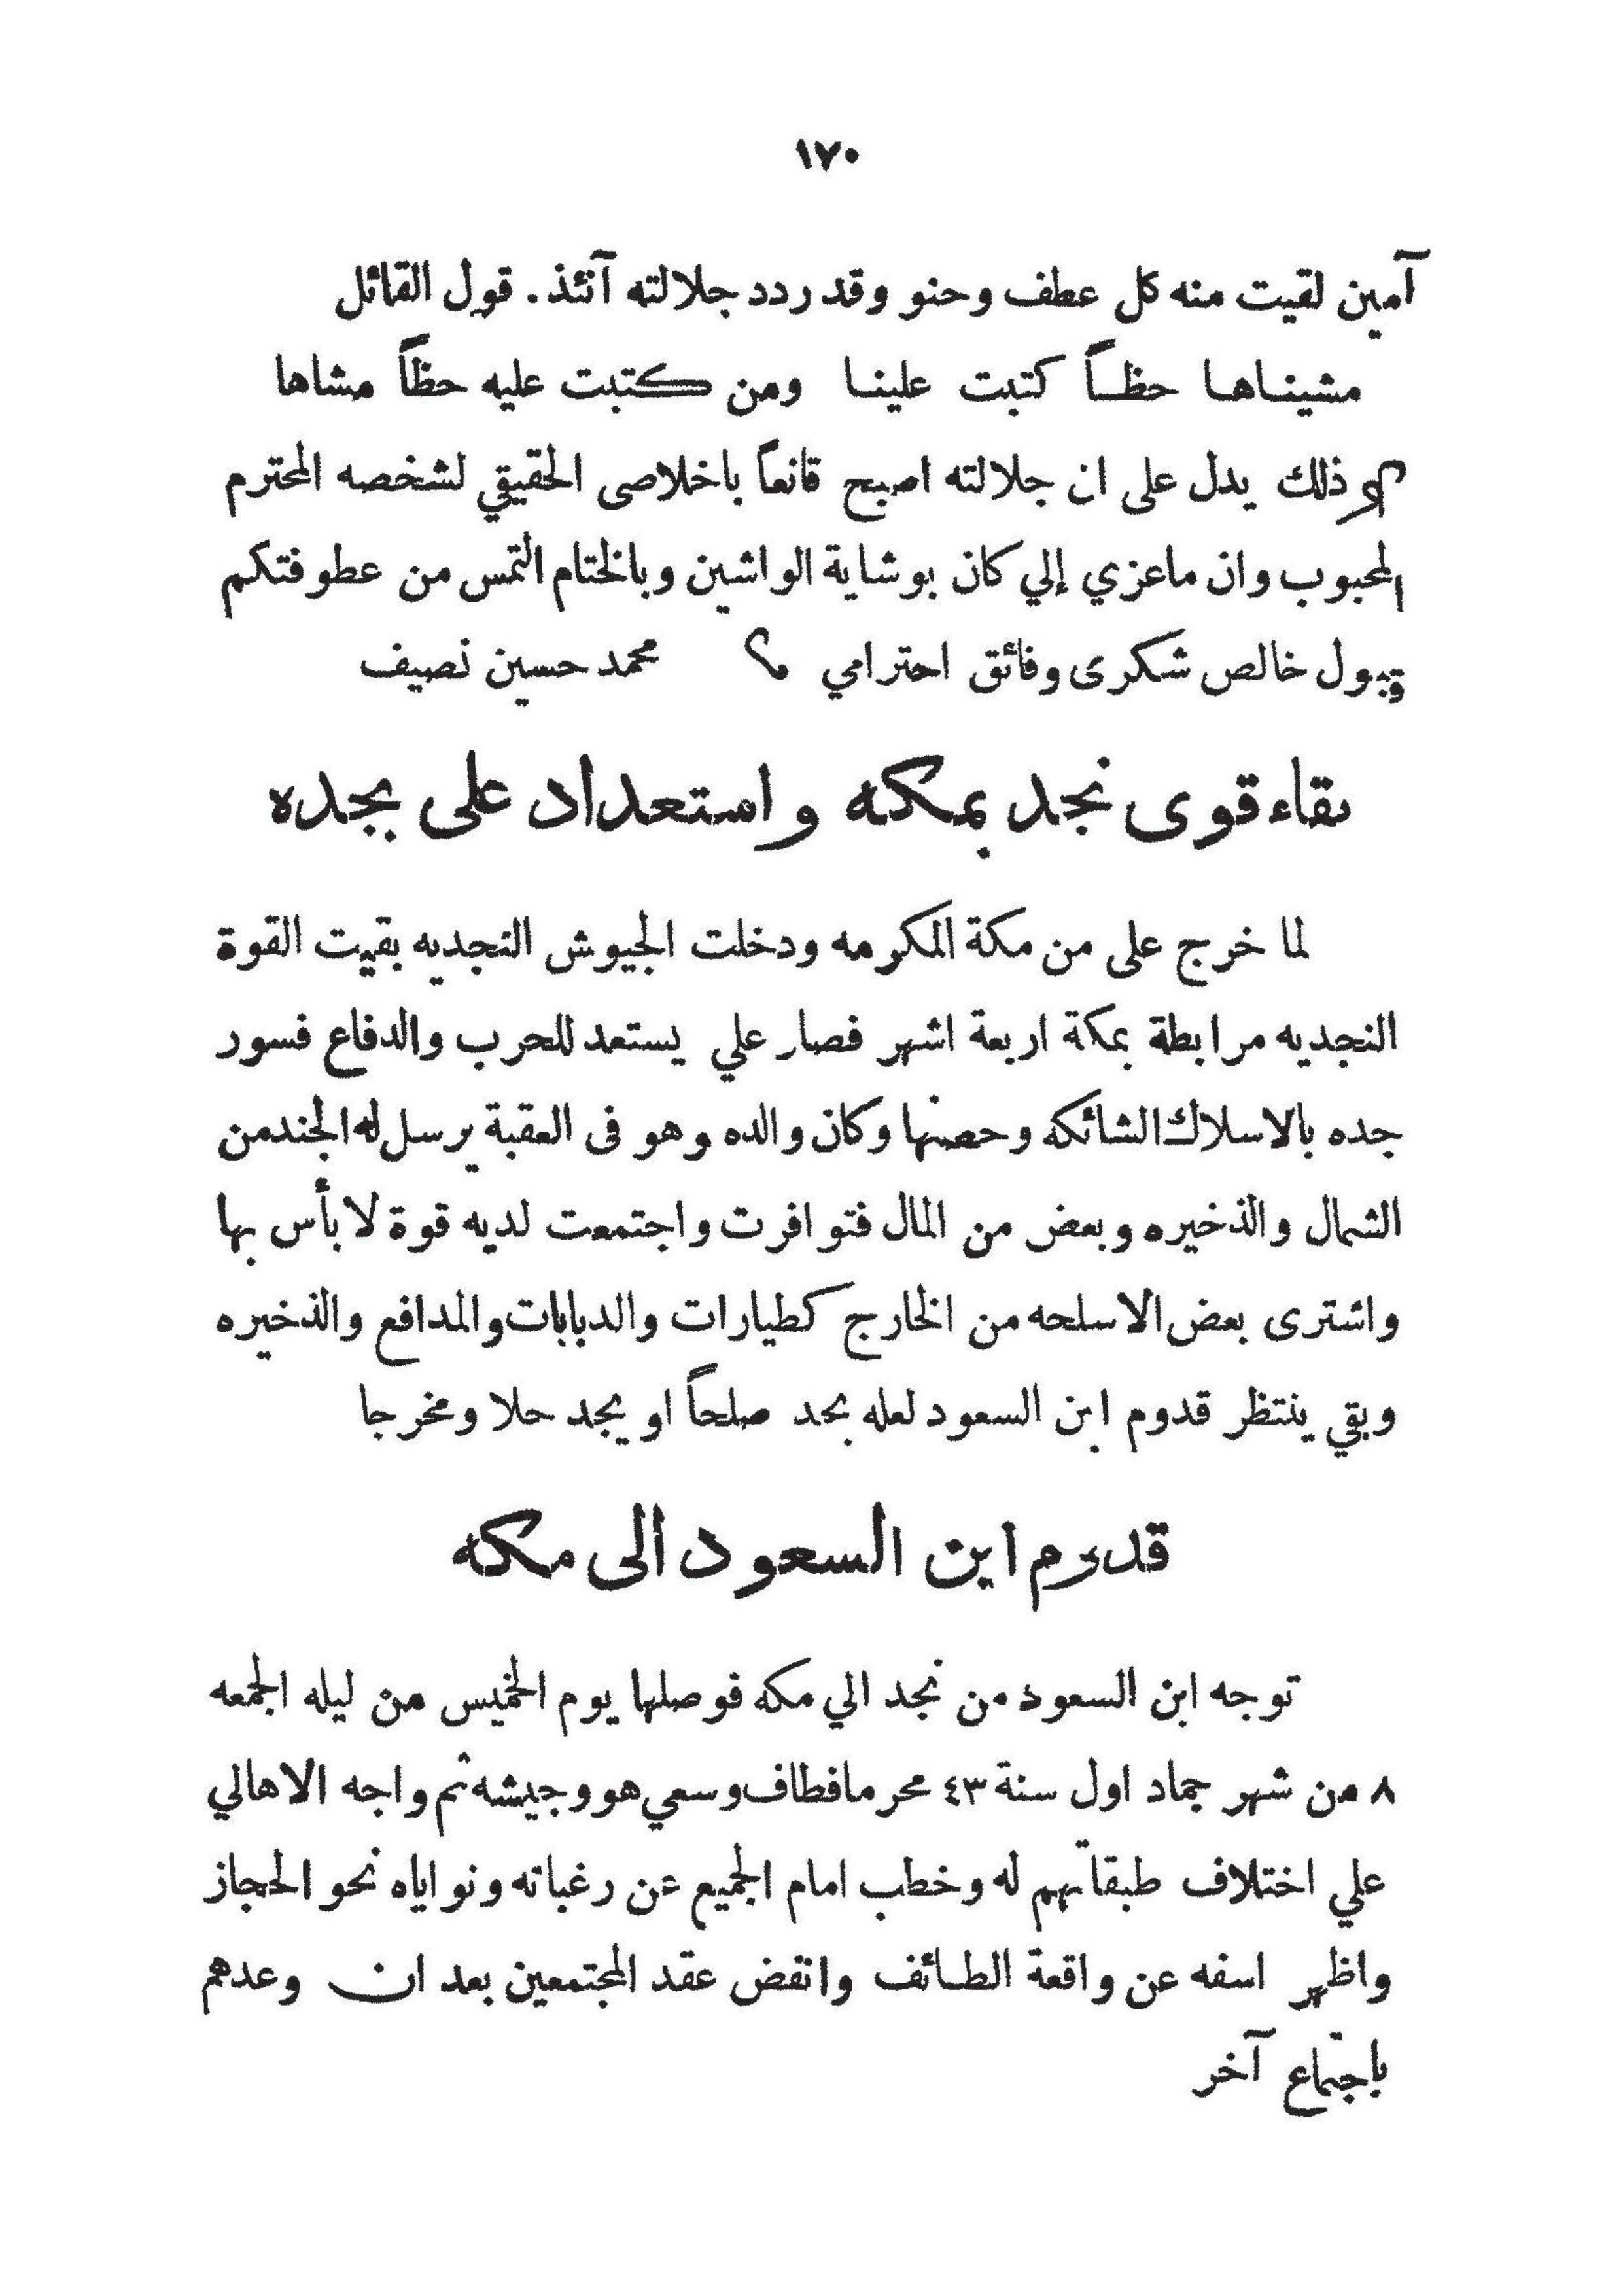 ١٧٠
آمين لقيت منه كل عطف وحنو وقد ردد جلالته آنئذ. قول القائل
مشيناها حظاً كتبت علينا ومن كتبت عليه حظاً مشاها
وذلك يدل على ان جلالته اصبح قانعاً باخلاصى الحقيقي لشخصه المحترم
المحبوب وان ماعزي إلي كان بوشاية الواشين وبالختام التمس من عطوفتكم
قبول خالص شكرى وفائق احترامي محمد حسين نصيف
بقاء قوى نجد بمكه واستعداد على بجده
لما خرج على من مكة المكرمه ودخلت الجيوش النجديه بقيت القوة
النجديه مرابطة بمكة اربعة اشهر فصار علي يستعد للحرب والدفاع فسور
جده بالاسلاك الشائكه وحصنها وكان والده وهو فى العقبة يرسل له الجند من
الشمال والذخيره وبعض من المال فتوافرت واجتمعت لديه قوة لا بأس بها
واشترى بعض الاسلحه من الخارج كطيارات والدبابات والمدافع والذخيره
وبقي ينتظر قدوم ابن السعود لعله يجد صلحاً او يجد حلا ومخرجا
قدوم ابن السعود الى مكه
توجه ابن السعود من نجد الي مكه فوصلها يوم الخميس من ليله الجمعه
٨ من شهر جماد اول سنة ٤٣ محرما فطاف وسعي هو وجيشه ثم واجه الاهالي
علي اختلاف طبقاتهم له وخطب امام الجميع عن رغباته ونواياه نحو الحجاز
واظهر اسفه عن واقعة الطائف وانفض عقد المجتمعين بعد ان وعدهم
باجتماع آخر